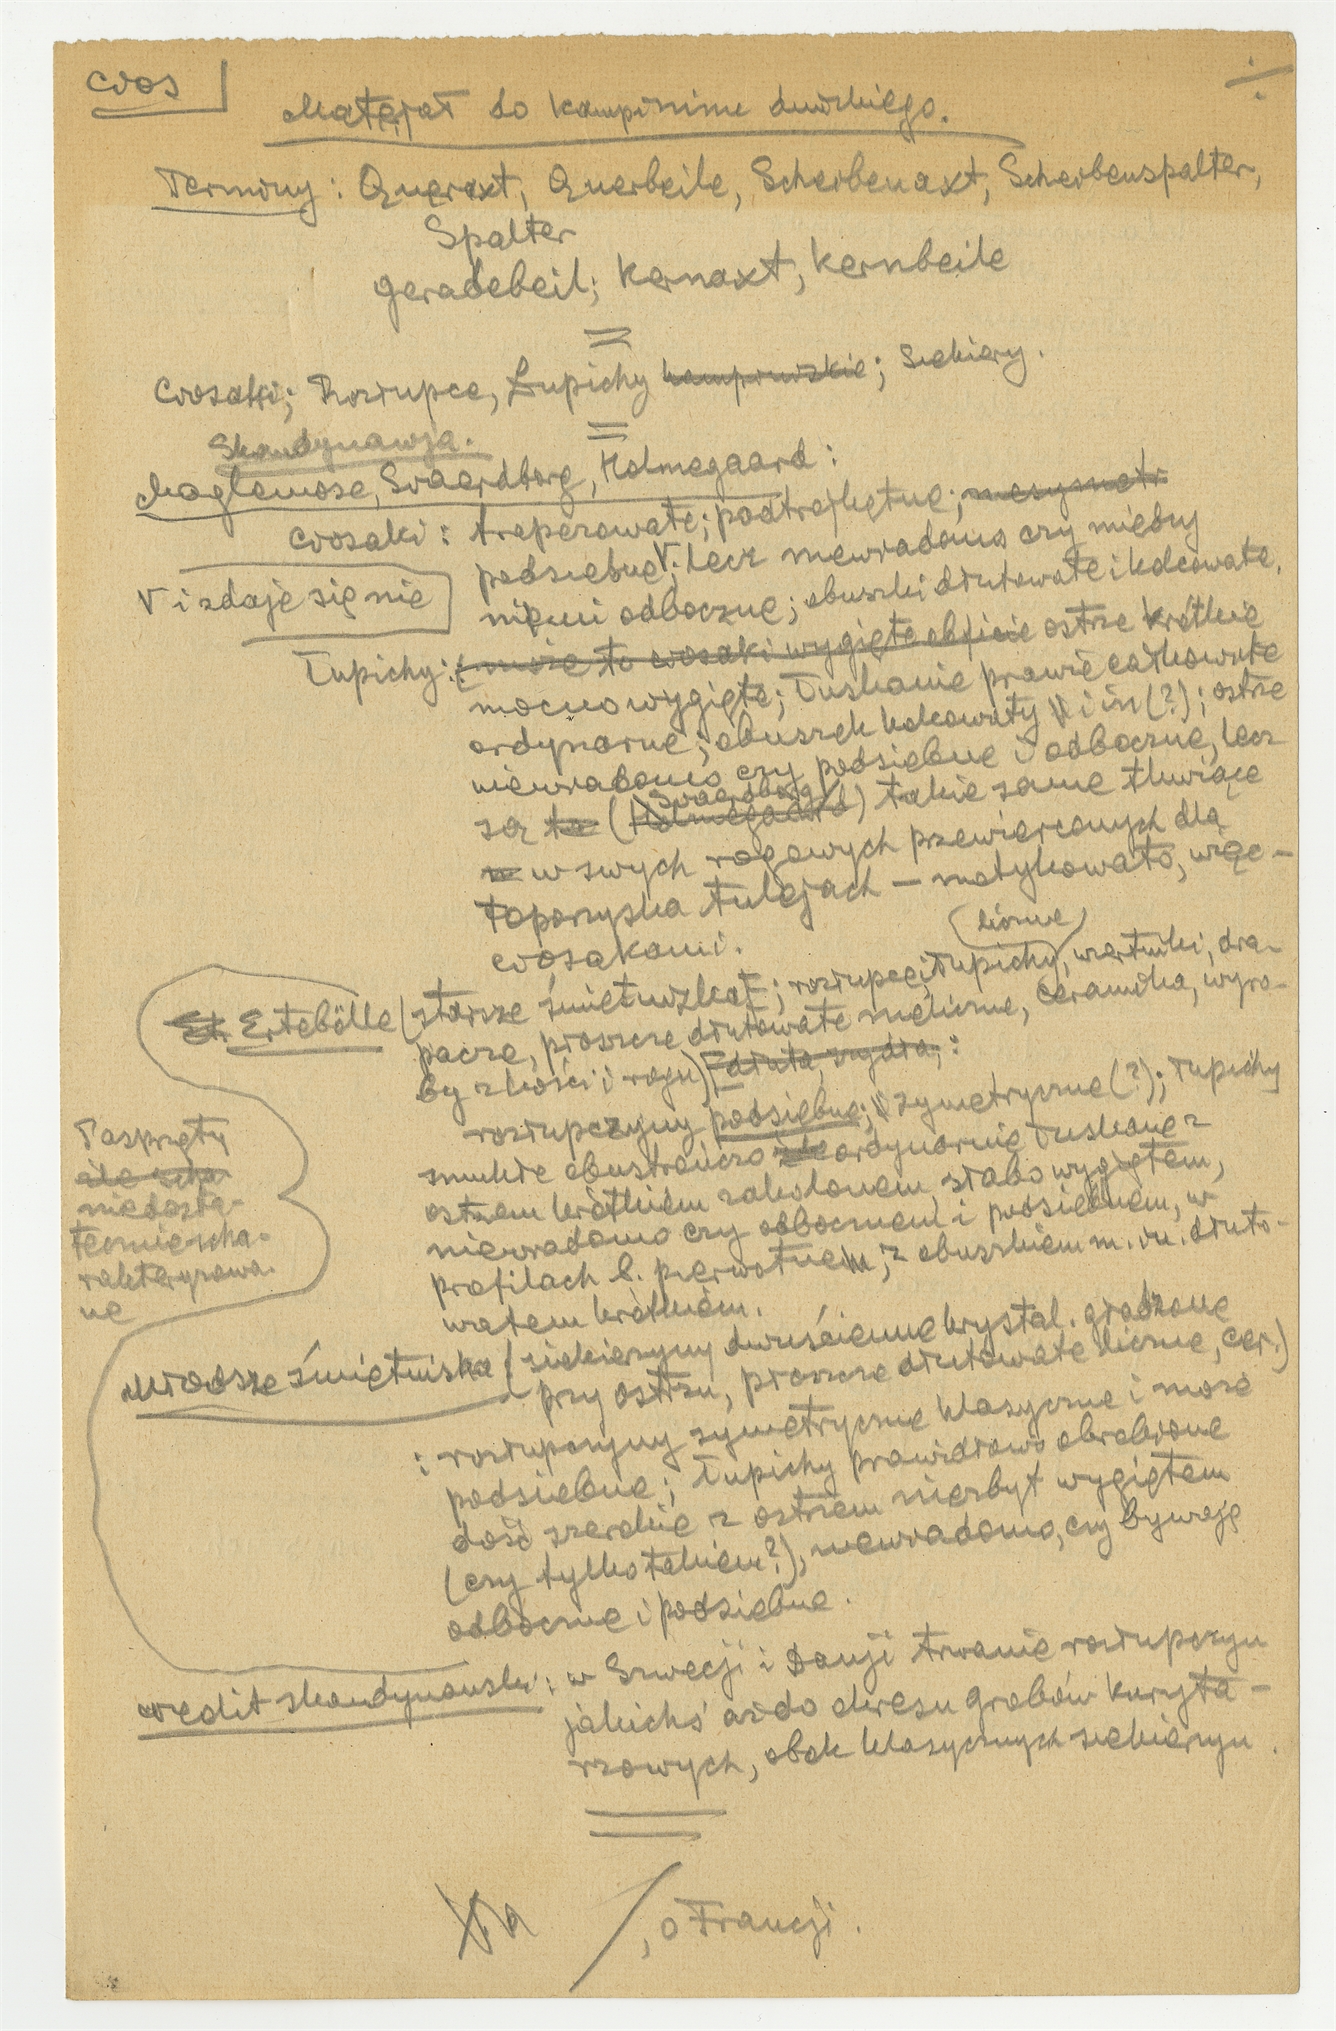 Ciosy
Materjał do kampinium duńskiego.
Terminy: Queraxt, Querbeile, Scherbenaxt, Scherbenspalter,
Spalter
geradebeil; Kernaxt, Kernbeile
=
Ciosaki; Rozłupce, Łupichy kampinuskie; Siekiery.
=
Skandynawja.
Maglemose, Svaerdborg, Holmegaard:
ciosaki: trapezowate; podtrójkątne; niesymetr
podsiebne V; lecz niewiadomo czy między
V i zdaje się nie
niemi odboczne; obuszki dłutowate i kolcowate.
Łupichy: (może to ciosaki wygięte obficie ostrze krótkie
mocno wygięte; łuskanie prawie całkowite
ordynarne; obuszek kolcowaty i in (?); ostrze
niewiadomo czy podsiebne i odboczne, lecz
Svaerdborg
są te (Holmegaard) takie same tkwiące
w swych rogowych przewierconych dla
toporzyska tulejach – motykowato, więc –
ciosakami.
liczne
Et Ertebölle (starsze śmietniska); rozłupce, łupichy, wiertniki, dra-
pacze, płoszcze dłutowate nieliczne, ceramika, wyro-
by z kości i rogu) dłuta, szydła, :
rozłupczyny podsiebne; symetryczne (?); łupichy
smukłe obustronczo ordynarnie łuskane z
ostrzem krótkiem zakolonem, słabo wygiętem,
niewiadomo czy odbocznem i podsiebnem, w
profilach b. pierwotnem, z obuszkiem m. in. dłuto-
watem krótkiem.
Te sprzęty
niedosta-
tecznie scha-
rakteryzowa-
ne
Młodsze śmietniska (siekierzyny dwuścienne krystal. gładzone
przy ostrzu, płoszcze dłutowate liczne, cer.)
: rozłupczyny symetryczne klasyczne i może
podsiebne; łupichy prawidłowo obrobione
dość szerokie z ostrzem niezbyt wygiętem
(czy tylko takiem?), niewiadomo, czy bywają
odboczne i podsiebne.
neolit skandynawski: w Szwecji i Danji trwanie rozłupczyn
jakichś aż do okresu grobów kuryta-
rzowych, obok klasycznych siekierzyn.
, o Francji.